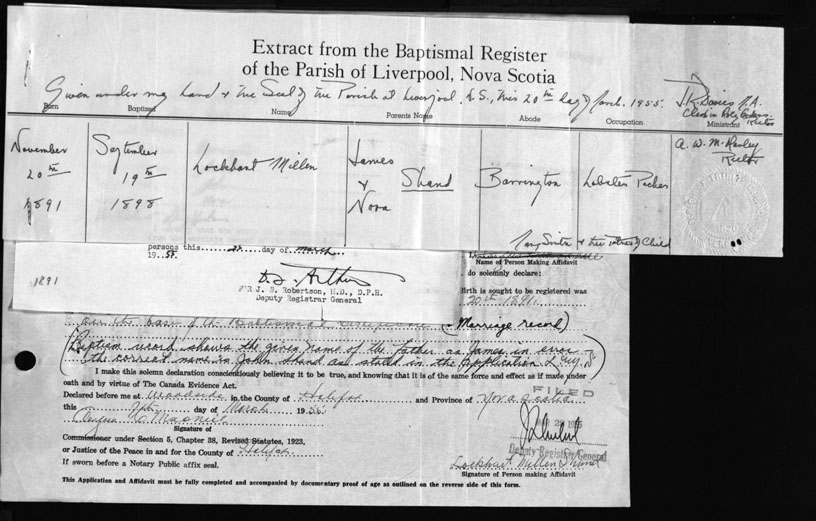 Extract from the Baptismal Register
of the Parish of Liverpool, Nova Scotia
Given under my hand & the Seal of the Parish at Liverpool, N.S., this 20th day of March. 1955.
J.K. Davies
Rector
Born
Baptized
Name
Parents Name
Abode
Occupation
Ministrant
November
20th
1891
September
19th
1898
Lockhart Millen
James
&
Nova
Shand
Barrington
Lobster Packer
A. W. M. Harley
Rector
persons this day of March
19 55.
1891
FOR J. S. Robertson, M.D., D.P.H.
Deputy Registrar General
Name of Person Making Affidavit
do solemnly declare:
Birth is sought to be registered was
20th 1891
on the basis of the Baptismal (& Marriage record)
(Baptism record shows the given name of the father as James in error -
the correct name is John Shand as stated in the application
I make this solemn declaration conscientiously believing it to be true, and knowing that it is of the same force and effect as if made under
oath and by virtue of The Canada Evidence Act.
Declared before me at Woodside in the County of Halifax and Province of Nova Scotia
FILED
this day of March 1955
Signature of
Commissioner under Section 5, Chapter 38, Revised Statutes, 1923,
or Justice of the Peace in and for the County of Halifax
If sworn before a Notary Public affix seal.
Deputy Registrar General
Lockhart Millen Shand
Signature of Person making Affidavit
This Application and Affidavit must be fully completed and accompanied by documentary proof of age as outlined on the reverse side of this form.